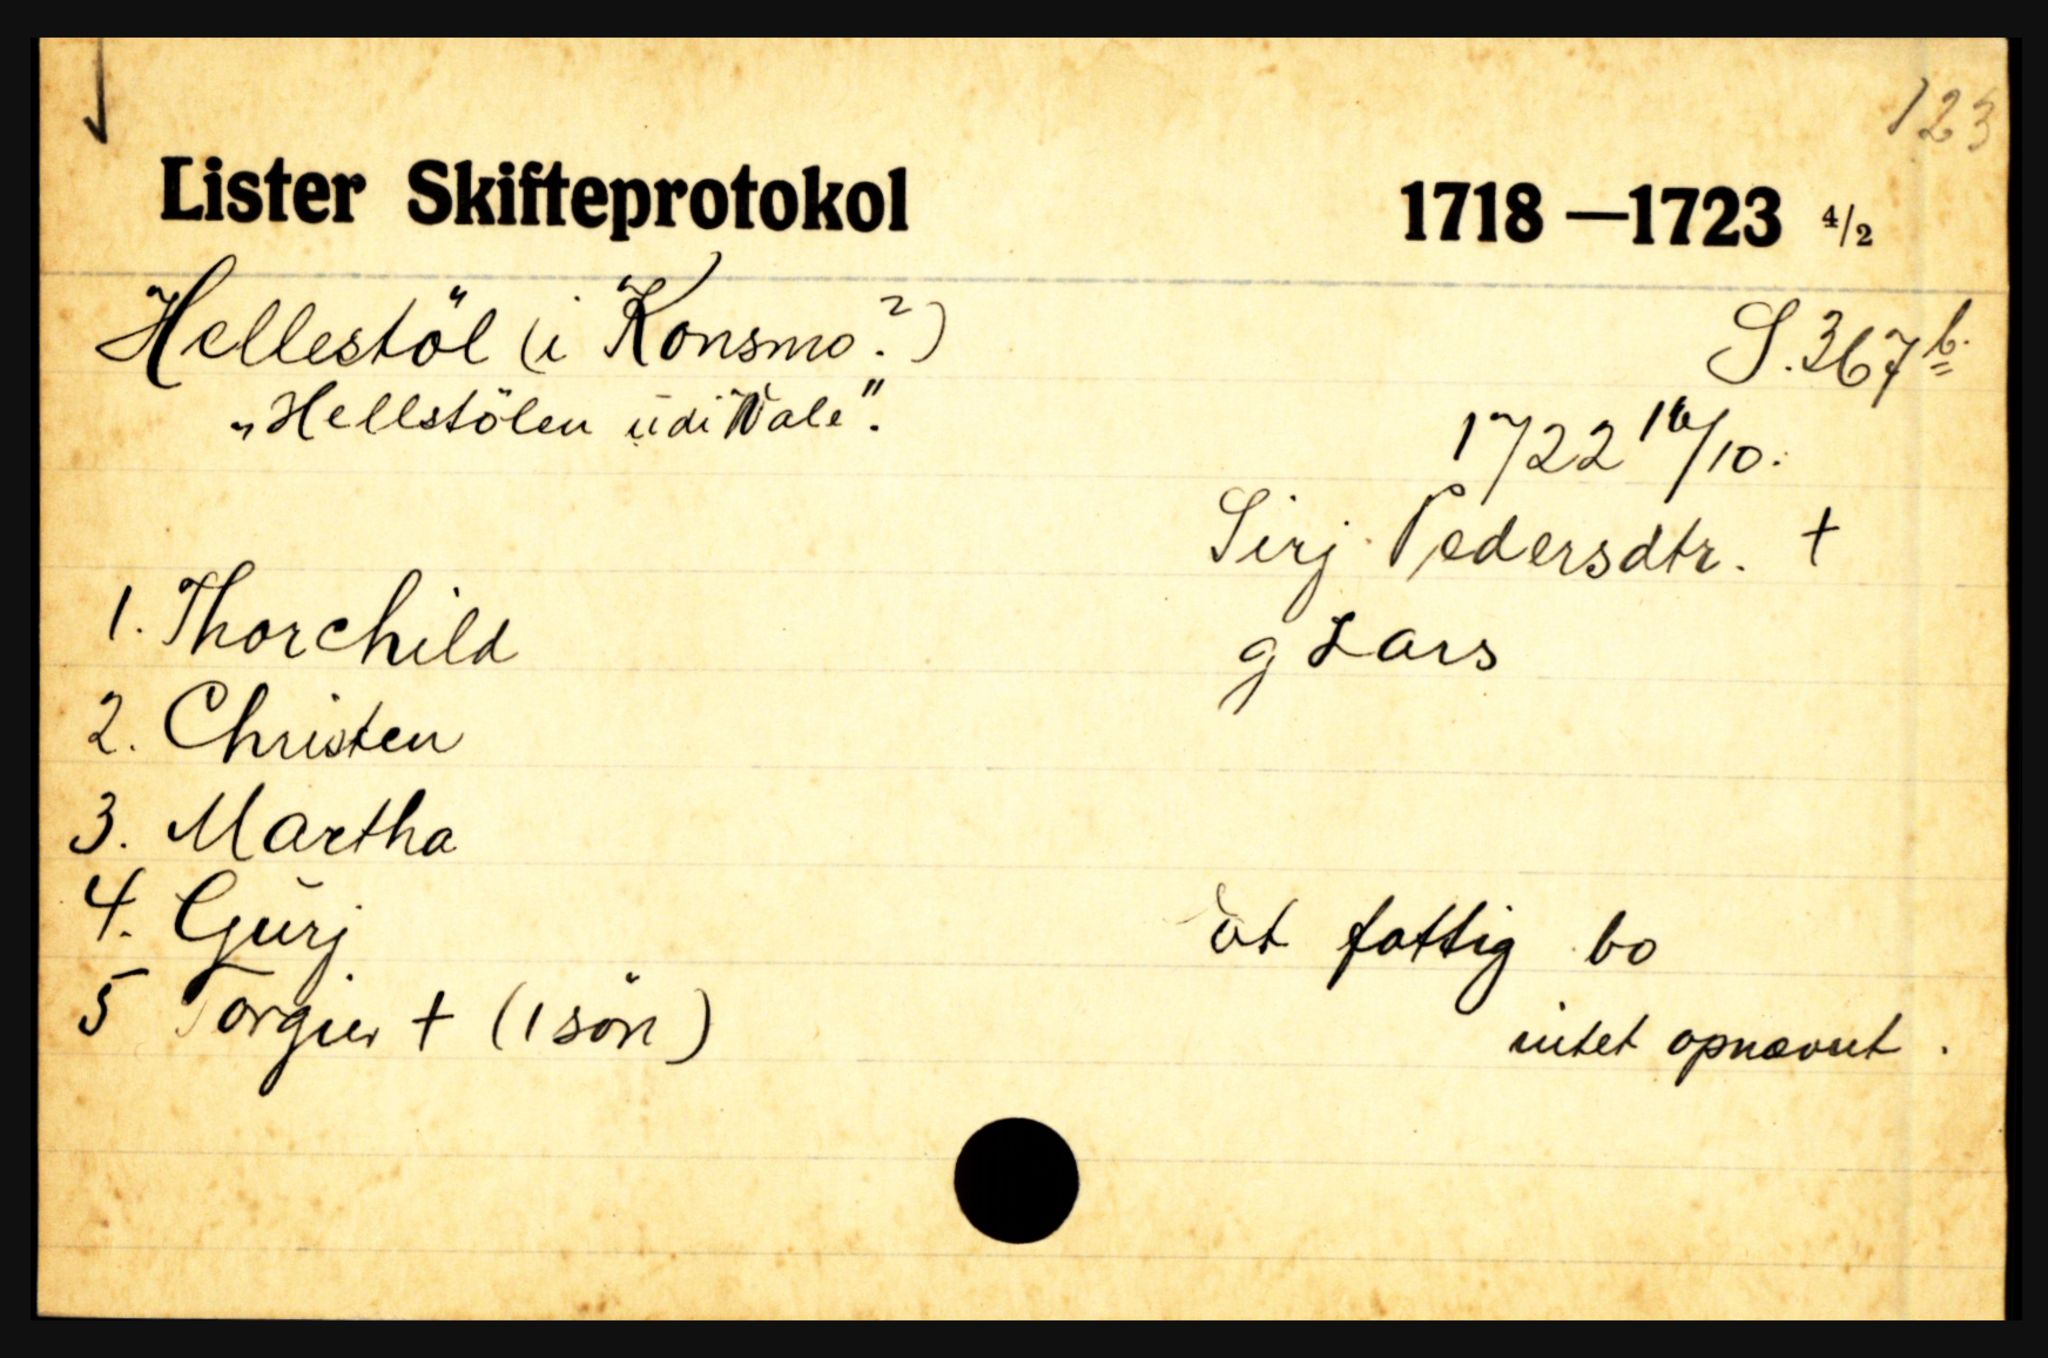 123
Lister Skifteprotokol 1718 — 1723 4/2
Hellestöl (i Konsmo?) S. 367 b.
„Hellstölen udi Vale". 
1722 16/10.
Sirj Pedersdtr. †
1. Thorchild g Lars
2. Christen
3. Martha
4. Gurj et fattig bo
5 Torgier † (1 sön)
intet opnævnt.